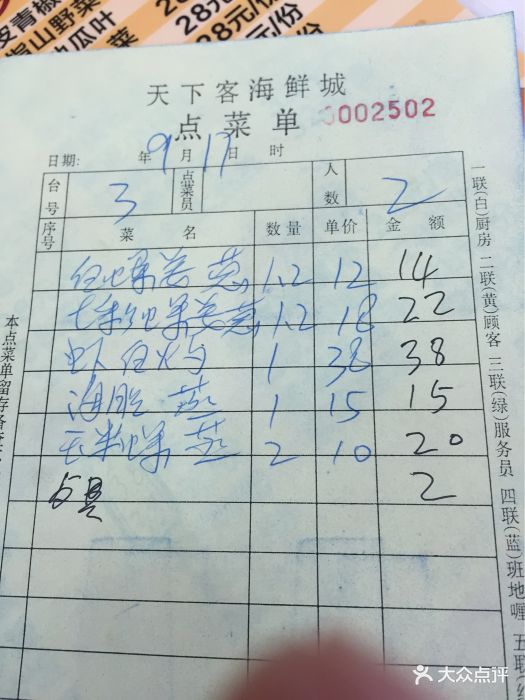 皮青椒 28元/份
山野菜 28元/份
地瓜叶 28元/份
天下客海鲜城
点菜单 0002502
日期: 年9月17日 时
台号 3 点菜员 人数 2
序号 菜名 数量 单价 金额
姜葱 1.2 12 14
姜葱 1.2 18 22
虾白灼 1 38 38
海胆 蒸 1 15 15
蒸 2 10 20
2
一联(白)厨房 二联(黄)顾客 三联(绿)服务员 四联(蓝)班地喱 五联
本点菜单留存备查
大众点评